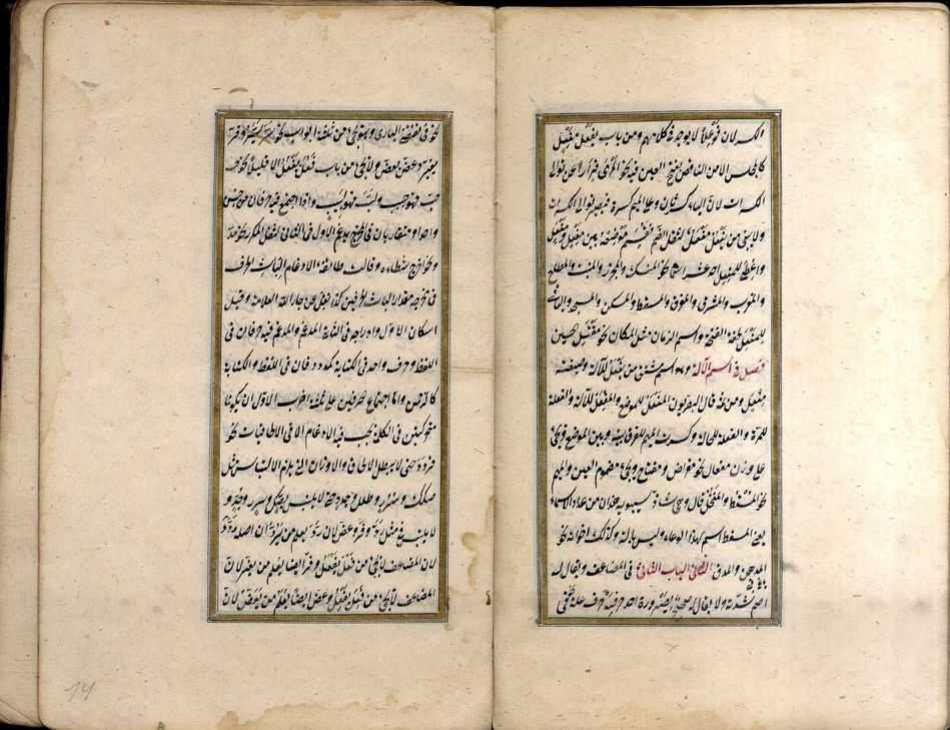 الكسر لان فوعلا لا يوجد في كلامهم ومن باب يفعل مفعل
كالمجلس الا من الناقص بفتح العين فيه نحو المرمى فرارا عن توالى
الكسرات لان الياء كسرتان وعلى الميم كسرة فيصير توالى الكسرات
ولا يبنى من يفعل مفعل لثقل الضم فقسم موضعه بين مفعل ومفعل
واعطى للمفعل احد عشر اسما نحو المنسك والمجزر والمنبت والمطلع
والمغرب والمشرق والمفرق والمسقط والمسكن والمسجد والباقى
للمفعل لخفة الفتحة واسم الزمان مثل المكان نحو مقتل حسين
فصل فى اسم الآلة وهو اسم مشتق من يفعل للآلة وصيغته
مفعل ومن ثمه قال الصرفيون المفعل للموضع والمفعل للآلة والفعلة
للمرة والفعلة للحالة وكسرت الميم للفرق بينه وبين الموضع ويجئ
على وزن مفعال نحو مقراض ومفتاح ويجئ مضموم العين والميم
نحو المسعط والمنخل قال سيبويه هذان من عداد الاسماء
يعنى المسعط اسم لهذا الوعاء وليس بآلة وكذلك اخواته نحو
المدهن والمدق الباب الثانى فى المضاعف ويقال له
اصم لشدته ولا يقال له صحيح لصيرورة احد حرفيه حرف علة فى
نحو فى تقضى البازى وهو يجئ من ثلثة ابواب نحو سر يسر وفر
يفر وعض يعض ولا يجئ من باب فعل يفعل الا قليلا نحو حب
حب فهو حبيب ولب فهو لبيب واذا اجتمع فيه حرفان من جنس
واحد او متقاربان فى المخرج يدغم الاول فى الثانى لثقل المكرر نحو مد
ونحو اخرج شطاه وقالت طائفة الادغام الباث الحرف
فى مخرجه مقدار الباث الحرفين كذا نقل عن جار الله العلامة وقيل
اسكان الاول وادراجه فى الثانى المدغم والمدغم فيه حرفان فى
اللفظ وحرف واحد فى الكتابة كمدد حرفان فى اللفظ والكتابة
كالرحمن واما اجتماع الحرفين على ثلثة اضرب الاول ان يكونا
متحركين فى الكلمة يجب فيه الادغام الا فى الالحاقيات نحو
قردد حتى لا يبطل الالحاق والاوزان التى يلزم الالتباس مثل
صكك وسرر وطلل وجدد حتى لا يلتبس بصك وسر وجد و
لا يلتبس فى مثل رد وفر وعض لان رد يعلم من يرد ان اصله ردد
لان المضاعف لا يجئ من فعل يفعل وفر ايضا يعلم من يفر لان
المضاعف لا يجئ من فعل يفعل وعض ايضا يعلم من يعض لان